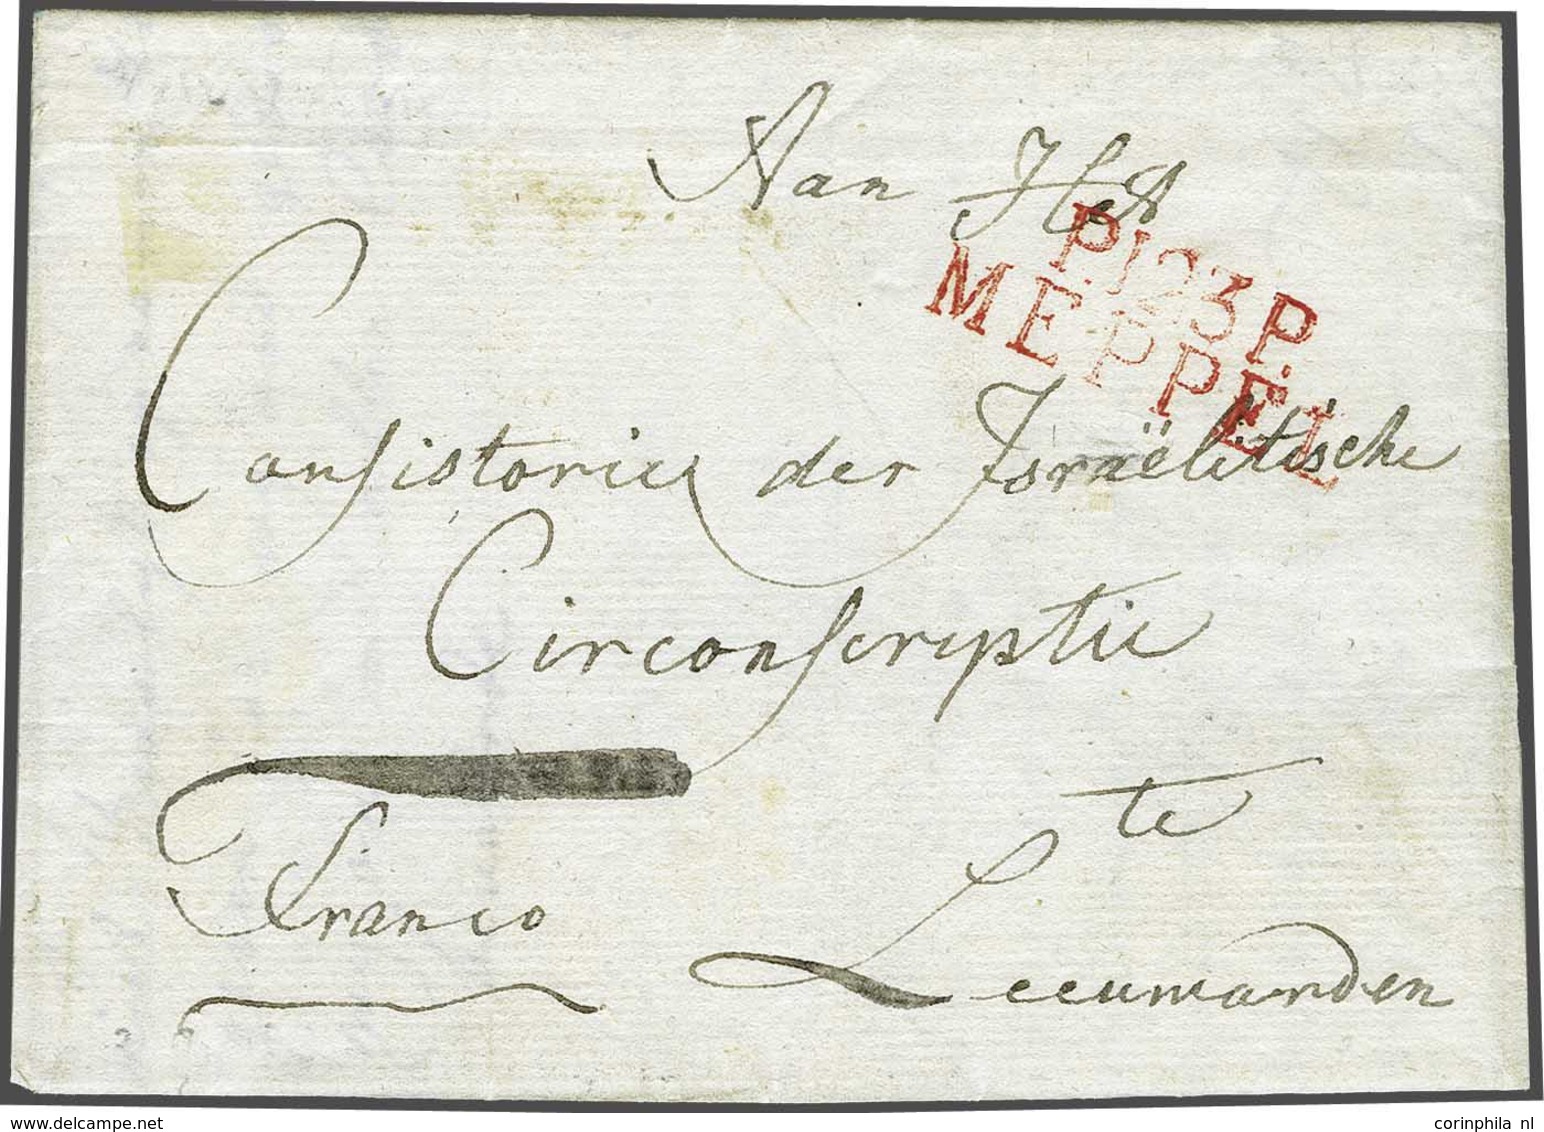 Aan Het
P.123P.
MEPPEL
Consistorie der Israëlitische
Circonscriptie
te
Franco
Leeuwarden
delcampe.net
corinphila nl